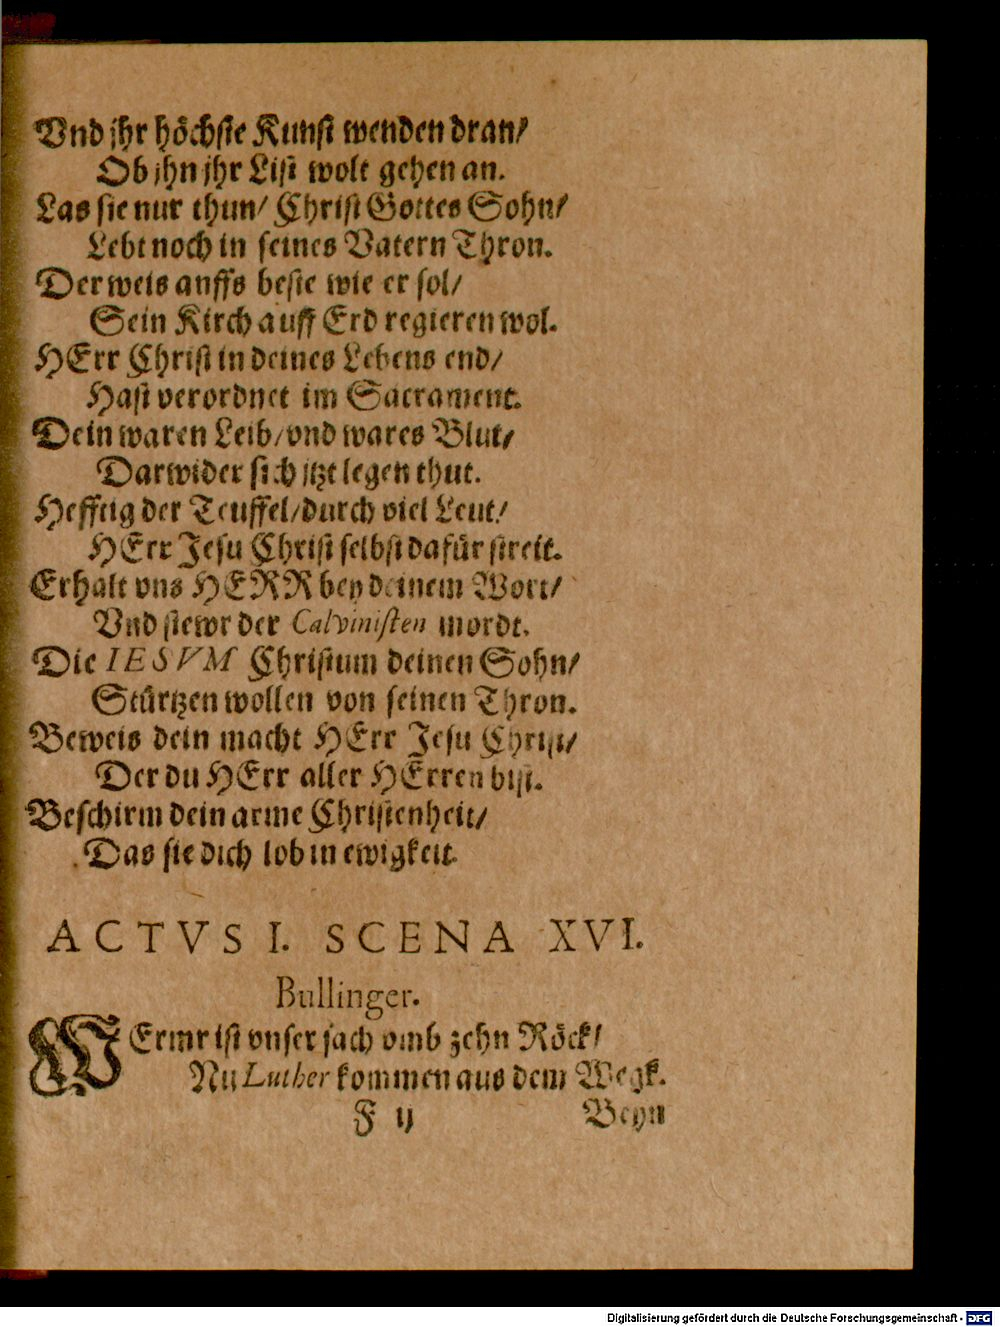 Vnd jhr höchste Kunst wenden dran/
Ob jhn jhr List wolt gehen an.
Las sie nur thun/ Christ Gottes Sohn/
Lebt noch in seines Vatern Thron.
Der weis auffs beste wie er sol/
Sein Kirch auff Erd regieren wol.
HErr Christ in deines Lebens end/
Hast verordnet im Sacrament.
Dein waren Leib/ vnd wares Blut/
Darwider sich jtzt legen thut.
Hefftig der Teuffel/ durch viel Leut/
HErr Jesu Christ selbst dafür streit.
Erhalt vns HERR bey deinem Wort/
Vnd stewr der Calvinisten mordt.
Die IESVM Christum deinen Sohn/
Stürtzen wollen von seinen Thron.
Beweis dein macht HErr Jesu Christ/
Der du HErr aller HErren bist.
Beschirm dein arme Christenheit/
Das sie dich lob in ewigkeit.
ACTVS I. SCENA XVI.
Bullinger.
WErmr ist vnser sach vmb zehn Röck/
Nu Luther kommen aus dem Wegk.
F ij
Beyn
Digitalisierung gefördert durch die Deutsche Forschungsgemeinschaft - DFG